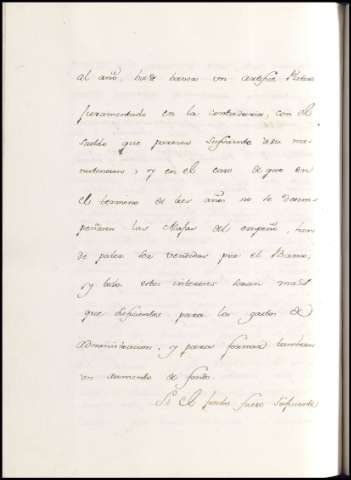 al año, hade haver un artifice Platero
juramentado en la contaduria, con el
sueldo que parezca suficiente a su ma-
nutencion; y en el caso de que en
el termino de tres años no se desem-
peñaren las Alajas del empeño, han
de poder ser vendidas por el Banco,
y todos estos intereses seran mas
que suficientes para los gastos de
Administracion, y para formar tambien
un aumento de fondo.
Si el fondo fuere suficiente